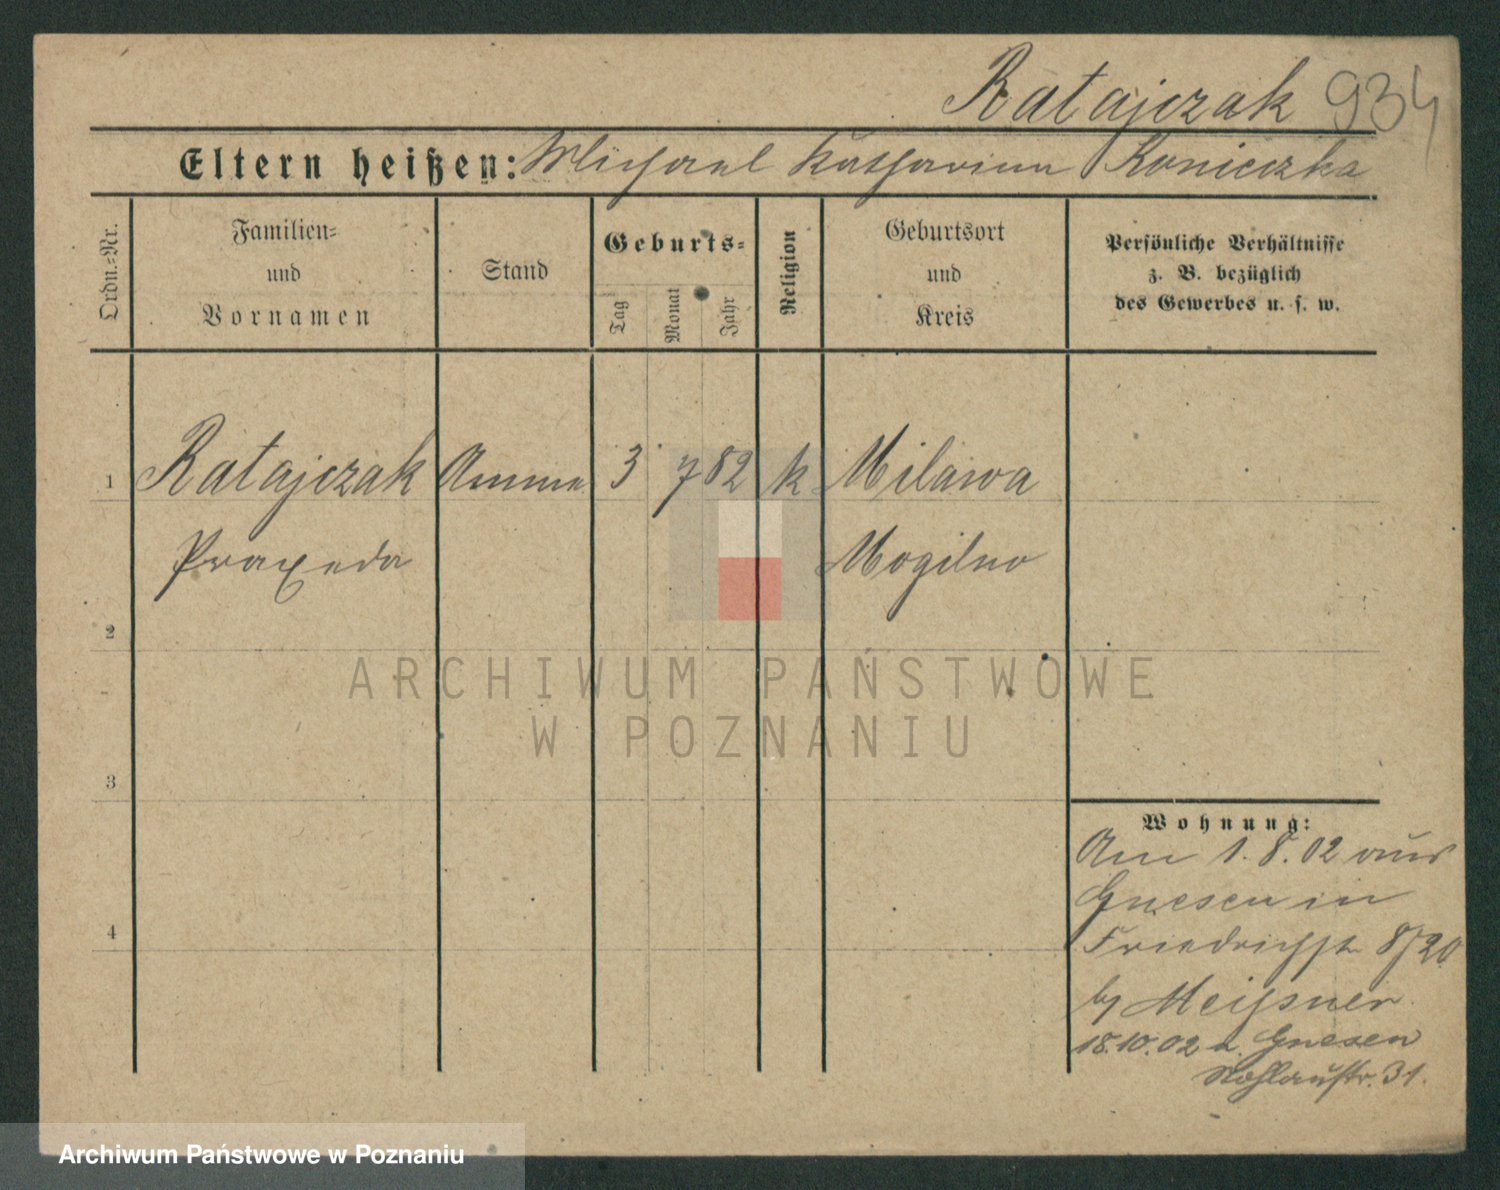 Ratajczak 934
Eltern heißen: Michael Katharina Konieczka
Ordn.-Nr.
Familien-
und
Vornamen
Stand
Geburts-
Tag
Monat
Jahr
Religion
Geburtsort
und
Kreis
Persönliche Verhältnisse
z. B. bezüglich
des Gewerbes u. s. w.
1 Ratajczak Amme 3 7 82 k Milawa
Praxeda Mogilno
2
3
4
Wohnung:
Am 1.8.02 aus
Gnesen in
Friedrichstr 8/20
by Meissner
18.10.02 n. Gnesen
31.
ARCHIWUM PAŃSTWOWE
W POZNANIU
Archiwum Państwowe w Poznaniu